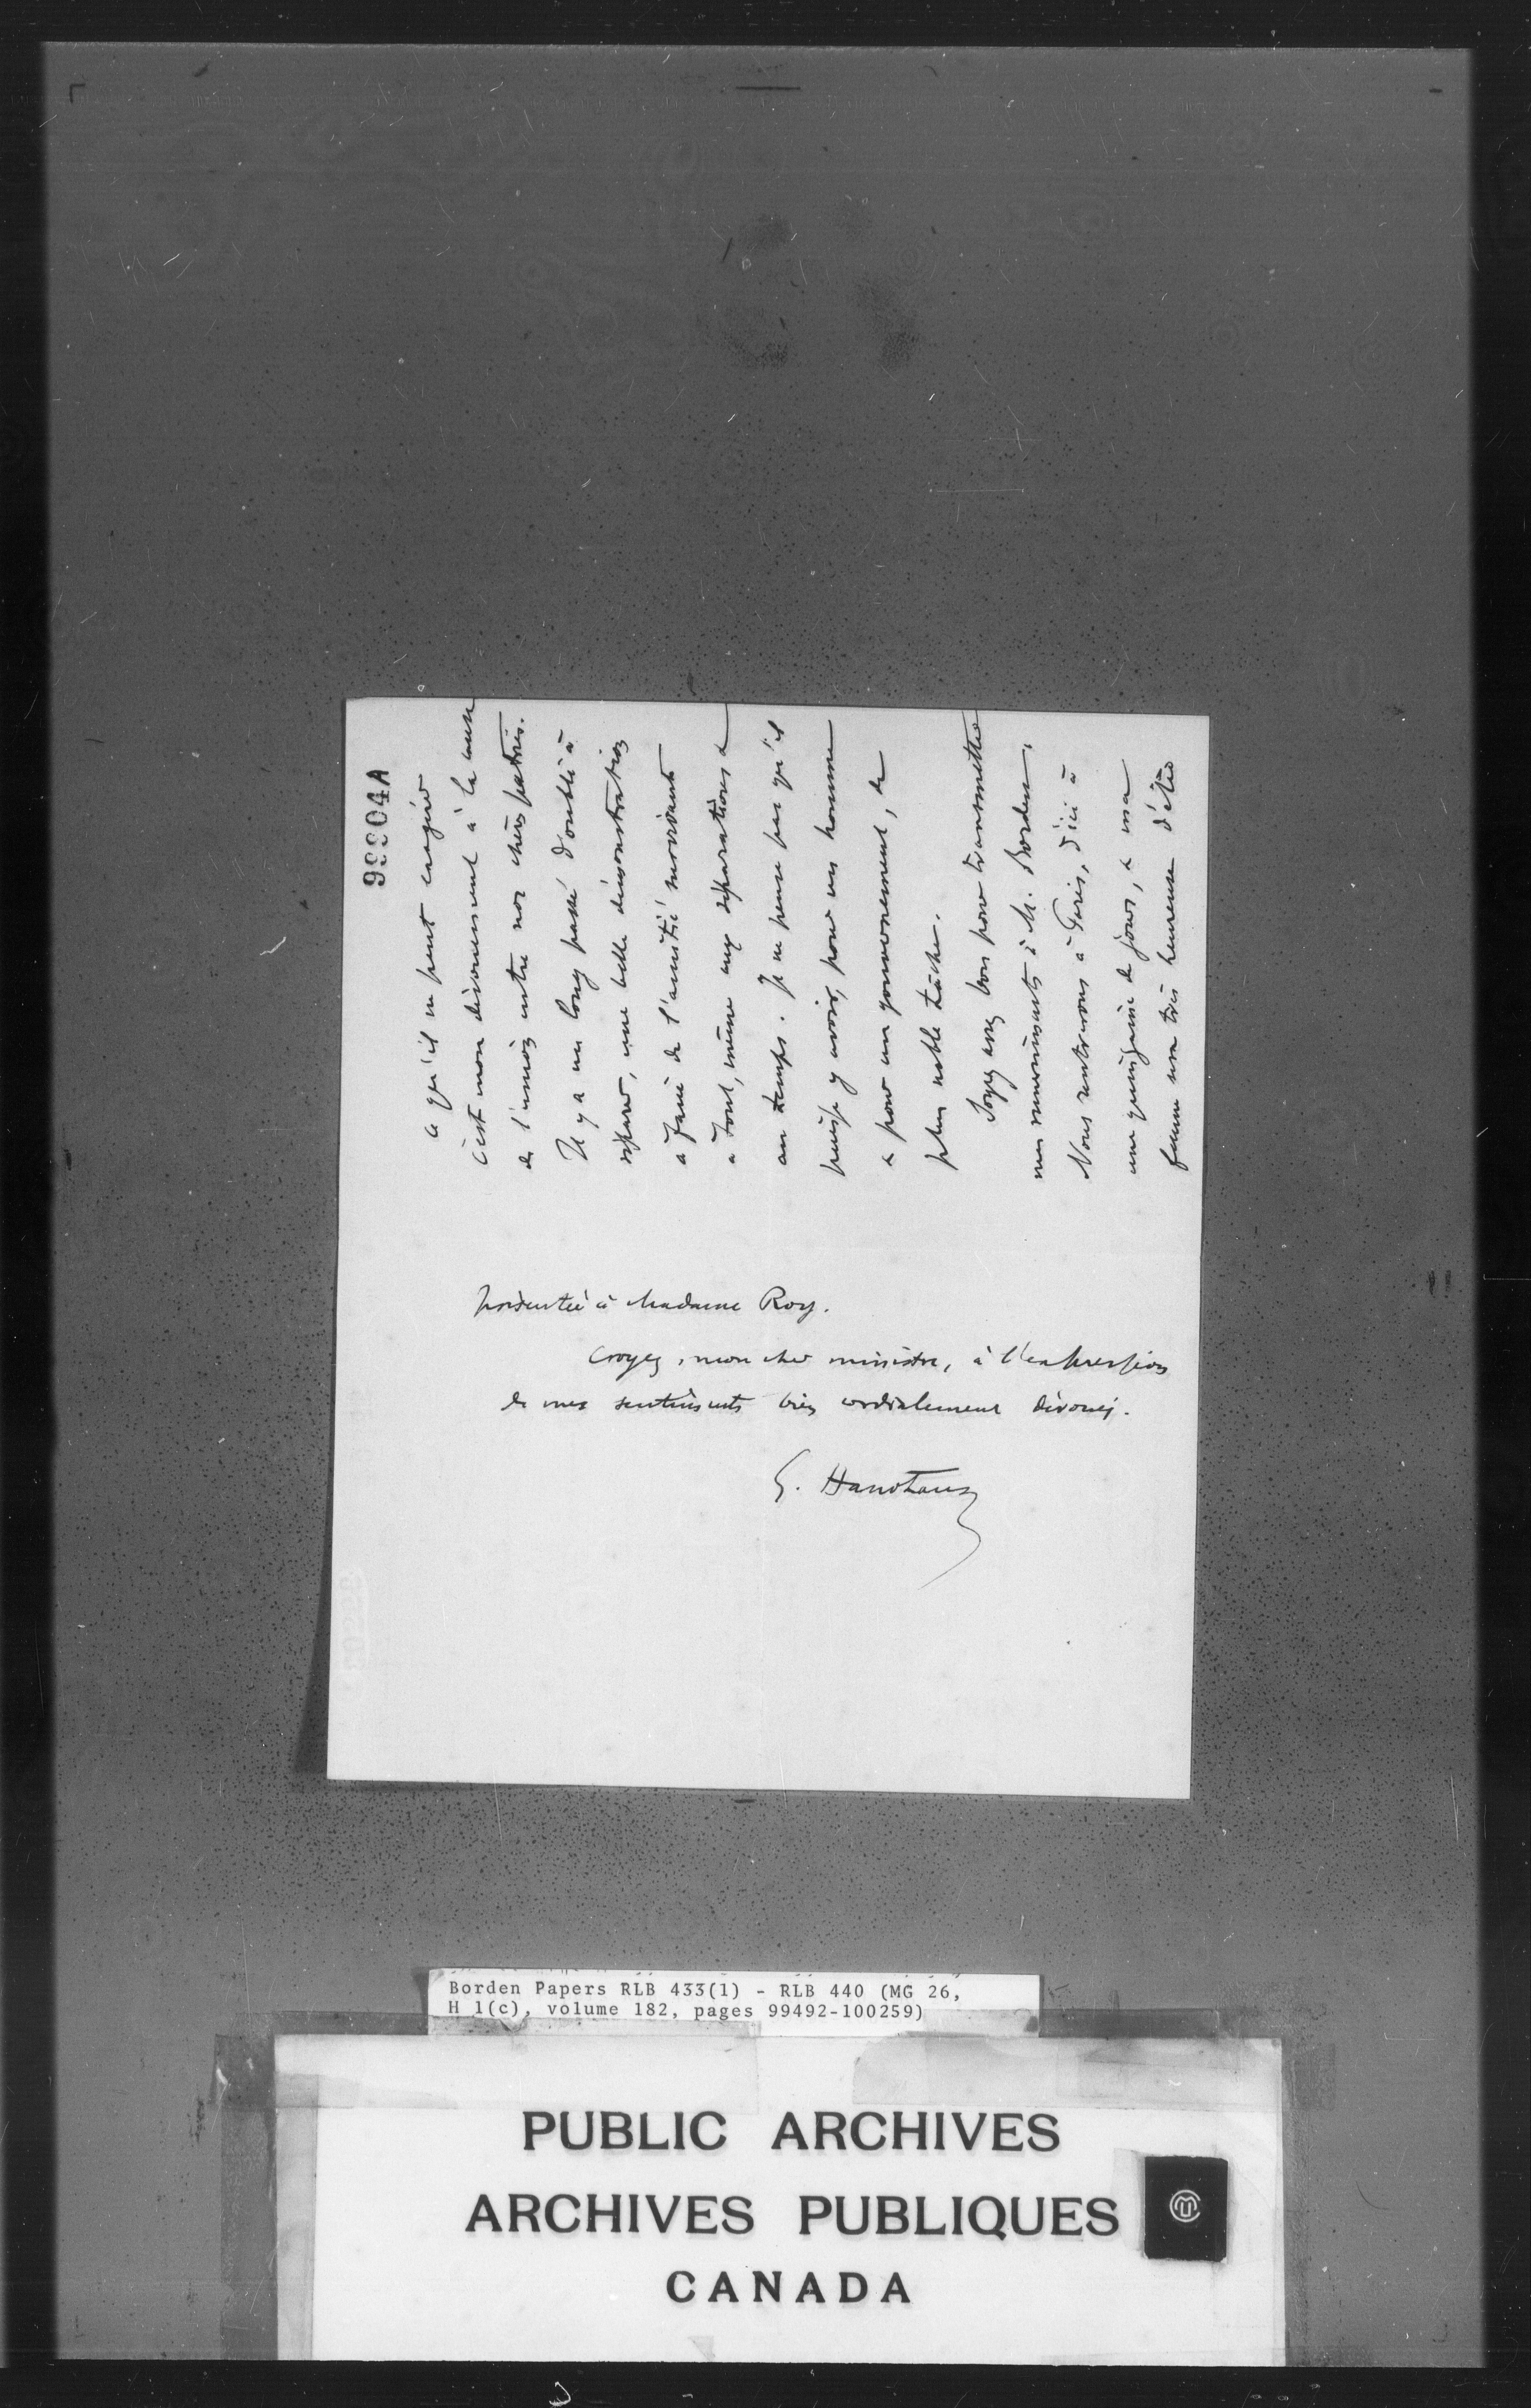 99904A
ce qu'il ne peut exagérer
c'est mon dévouement à la cause
de l'union entre nos chères patries.
Il y a un long passé d'oubli à
réparer, une belle démonstration
à faire de l'amitié survivante
à tout, même aux séparations &
au temps. Je ne pense pas qu'il
puisse y avoir, pour un homme
& pour un gouvernement, de
plus noble tâche.
Soyez assez bon pour transmettre
mes remerciements à M. Borden.
Nous rentrerons à Paris, d'ici à
une quinzaine de jours, & ma
femme sera très heureuse d'être
présentée à Madame Roy.
Croyez, mon cher ministre, à l'expression
de mes sentiments bien cordialement dévoués.
G. Hanotaux
Borden Papers RLB 433(1) - RLB 440 (MG 26,
H 1(c), volume 182, pages 99492-100259)
PUBLIC ARCHIVES
ARCHIVES PUBLIQUES
CANADA